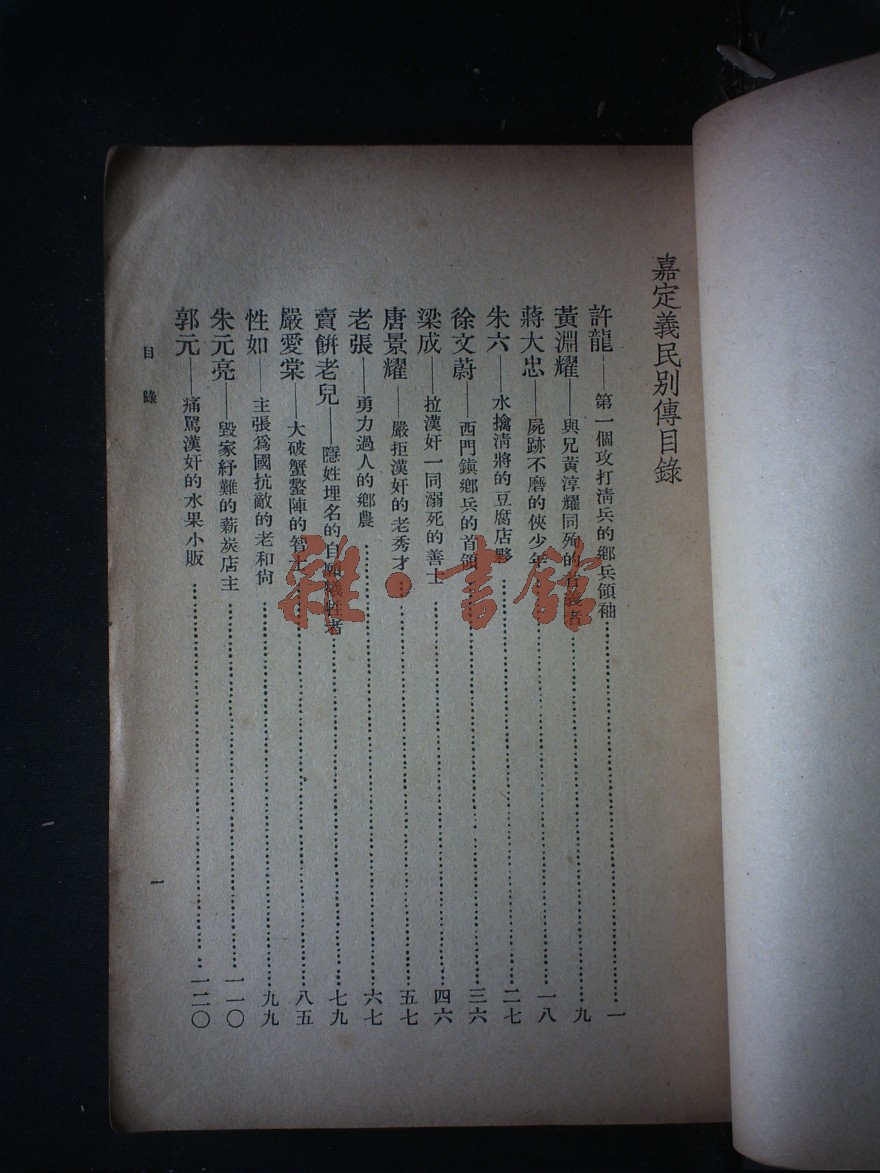 嘉定義民別傳目錄
許龍——第一個攻打淸兵的鄉兵領袖……一
黃淵耀——與兄黃淳耀同殉的者……九
蔣大忠——屍跡不磨的俠少年……一八
朱六——水擒淸將的豆腐店夥……二七
徐文蔚——西門鎭鄉兵的首領……三六
梁成——拉漢奸一同溺死的善士……四六
唐景耀——嚴拒漢奸的老秀才……五七
老張——勇力過人的鄉農……六七
賣餅老兒——隱姓埋名的自願犧牲者……七九
嚴愛棠——大破蟹螯陣的智士……八五
性如——主張爲國抗敵的老和尙……九九
朱元亮——毀家紓難的薪炭店主……一一〇
郭元——痛駡漢奸的水果小販……一二〇
目錄
一
雜·書館